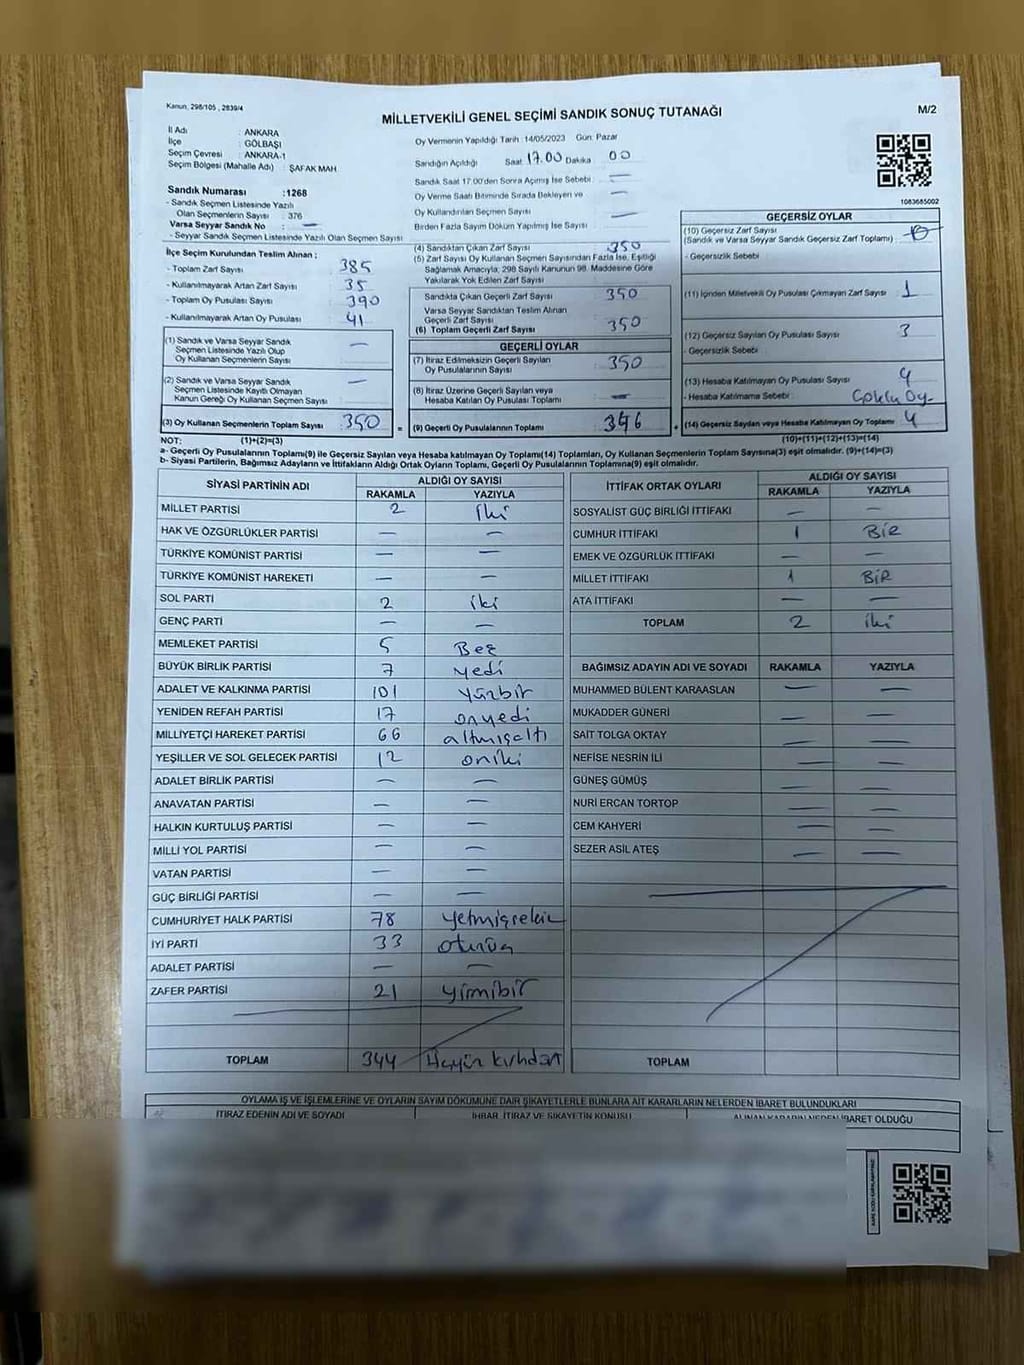 Kanun, 298/105 , 2839/4
MİLLETVEKİLİ GENEL SEÇİMİ SANDIK SONUÇ TUTANAĞI
M/2
İl Adı : ANKARA
İlçe : GÖLBAŞI
Seçim Çevresi : ANKARA-1
Seçim Bölgesi (Mahalle Adı) : ŞAFAK MAH
Sandık Numarası :1268
- Sandık Seçmen Listesinde Yazılı
Olan Seçmenlerin Sayısı : 376
Varsa Seyyar Sandık No : —
- Seyyar Sandık Seçmen Listesinde Yazılı Olan Seçmen Sayısı
Oy Vermenin Yapıldığı Tarih :14/05/2023 Gün: Pazar
Sandığın Açıldığı Saat 17.00 Dakika 00
Sandık Saat 17.00'den Sonra Açılmış İse Sebebi : —
Oy Verme Saati Bitiminde Sırada Bekleyen ve —
Oy Kullandırılan Seçmen Sayısı —
Birden Fazla Sayım Döküm Yapılmış İse Sayısı
1083685002
İlçe Seçim Kurulundan Teslim Alınan :
- Toplam Zarf Sayısı 385
- Kullanılmayarak Artan Zarf Sayısı : 35
- Toplam Oy Pusulası Sayısı : 390
- Kullanılmayarak Artan Oy Pusulası 41
(1) Sandık ve Varsa Seyyar Sandık —
Seçmen Listesinde Yazılı Olup
Oy Kullanan Seçmenlerin Sayısı
(2) Sandık ve Varsa Seyyar Sandık —
Seçmen Listesinde Kayıtlı Olmayan
Kanun Gereği Oy Kullanan Seçmen Sayısı
(3) Oy Kullanan Seçmenlerin Toplam Sayısı : 350
(4) Sandıktan Çıkan Zarf Sayısı : 350
(5) Zarf Sayısı Oy Kullanan Seçmen Sayısından Fazla İse, Eşitliği
Sağlamak Amacıyla; 298 Sayılı Kanunun 98. Maddesine Göre
Yakılarak Yok Edilen Zarf Sayısı :
Sandıkta Çıkan Geçerli Zarf Sayısı : 350
Varsa Seyyar Sandıktan Teslim Alınan
Geçerli Zarf Sayısı
(6) Toplam Geçerli Zarf Sayısı : 350
GEÇERLİ OYLAR
(7) İtiraz Edilmeksizin Geçerli Sayılan
Oy Pusulalarının Sayısı : 350
(8) İtiraz Üzerine Geçerli Sayılan veya
Hesaba Katılan Oy Pusulası Toplamı : —
= (9) Geçerli Oy Pusulalarının Toplamı : 346 +
GEÇERSİZ OYLAR
(10) Geçersiz Zarf Sayısı
(Sandık ve Varsa Seyyar Sandık Geçersiz Zarf Toplamı) :
- Geçersizlik Sebebi
(11) İçinden Milletvekili Oy Pusulası Çıkmayan Zarf Sayısı : 1
(12) Geçersiz Sayılan Oy Pusulası Sayısı : 3
- Geçersizlik Sebebi
(13) Hesaba Katılmayan Oy Pusulası Sayısı : 4
- Hesaba Katılmama Sebebi : Çoklu Oy
(14) Geçersiz Sayılan veya Hesaba Katılmayan Oy Toplamı : 4
NOT: (1)+(2)=(3) (10)+(11)+(12)+(13)=(14)
a- Geçerli Oy Pusulalarının Toplamı(9) ile Geçersiz Sayılan veya Hesaba katılmayan Oy Toplamı(14) Toplamları, Oy Kullanan Seçmenlerin Toplam Sayısına(3) eşit olmalıdır. (9)+(14)=(3)
b- Siyasi Partilerin, Bağımsız Adayların ve İttifakların Aldığı Ortak Oyların Toplamı, Geçerli Oy Pusulalarının Toplamına(9) eşit olmalıdır.
SİYASİ PARTİNİN ADI ALDIĞI OY SAYISI
RAKAMLA YAZIYLA
MİLLET PARTİSİ 2 iki
HAK VE ÖZGÜRLÜKLER PARTİSİ — —
TÜRKİYE KOMÜNİST PARTİSİ — —
TÜRKİYE KOMÜNİST HAREKETİ — —
SOL PARTİ 2 iki
GENÇ PARTİ — —
MEMLEKET PARTİSİ 5 Beş
BÜYÜK BİRLİK PARTİSİ 7 yedi
ADALET VE KALKINMA PARTİSİ 101 yüzbir
YENİDEN REFAH PARTİSİ 17 onyedi
MİLLİYETÇİ HAREKET PARTİSİ 66 altmışaltı
YEŞİLLER VE SOL GELECEK PARTİSİ 12 oniki
ADALET BİRLİK PARTİSİ — —
ANAVATAN PARTİSİ — —
HALKIN KURTULUŞ PARTİSİ — —
MİLLİ YOL PARTİSİ — —
VATAN PARTİSİ — —
GÜÇ BİRLİĞİ PARTİSİ — —
CUMHURİYET HALK PARTİSİ 78 yetmişsekiz
İYİ PARTİ 33 otuzüç
ADALET PARTİSİ — —
ZAFER PARTİSİ 21 yirmibir
TOPLAM 344
İTTİFAK ORTAK OYLARI ALDIĞI OY SAYISI
RAKAMLA YAZIYLA
SOSYALİST GÜÇ BİRLİĞİ İTTİFAKI — —
CUMHUR İTTİFAKI 1 BİR
EMEK VE ÖZGÜRLÜK İTTİFAKI — —
MİLLET İTTİFAKI 1 BİR
ATA İTTİFAKI — —
TOPLAM 2 iki
BAĞIMSIZ ADAYIN ADI VE SOYADI RAKAMLA YAZIYLA
MUHAMMED BÜLENT KARAASLAN — —
MUKADDER GÜNERİ — —
SAİT TOLGA OKTAY — —
NEFİSE NESRİN İLİ — —
GÜNEŞ GÜMÜŞ — —
NURİ ERCAN TORTOP — —
CEM KAHYERİ — —
SEZER ASİL ATEŞ — —
TOPLAM
OYLAMA İŞ VE İŞLEMLERİNE VE OYLARIN SAYIM DÖKÜMÜNE DAİR ŞİKAYETLERLE BUNLARA AİT KARARLARIN NELERDEN İBARET BULUNDUKLARI
İTİRAZ EDENİN ADI VE SOYADI İHBAR, İTİRAZ VE ŞİKAYETİN KONUSU ALINAN KARARIN NEDEN İBARET OLDUĞU